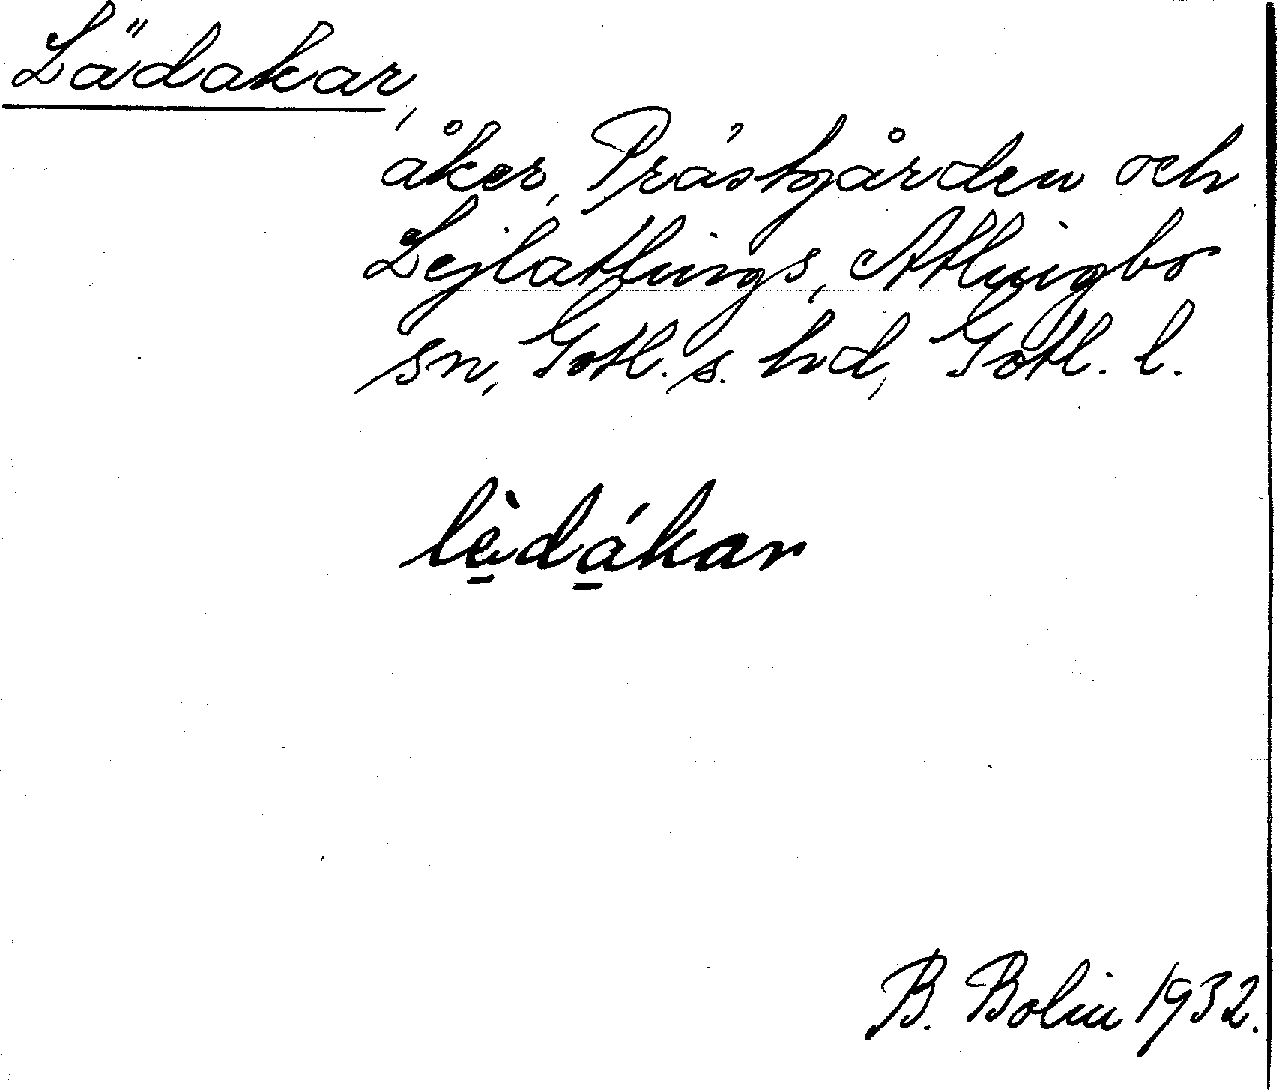 Lädakar,
åker, Prästgården och
Lejlatlings, Atlingbo
sn, Gotl. s. hd, Gotl. l.
lèdákar
B. Bolin 1932.